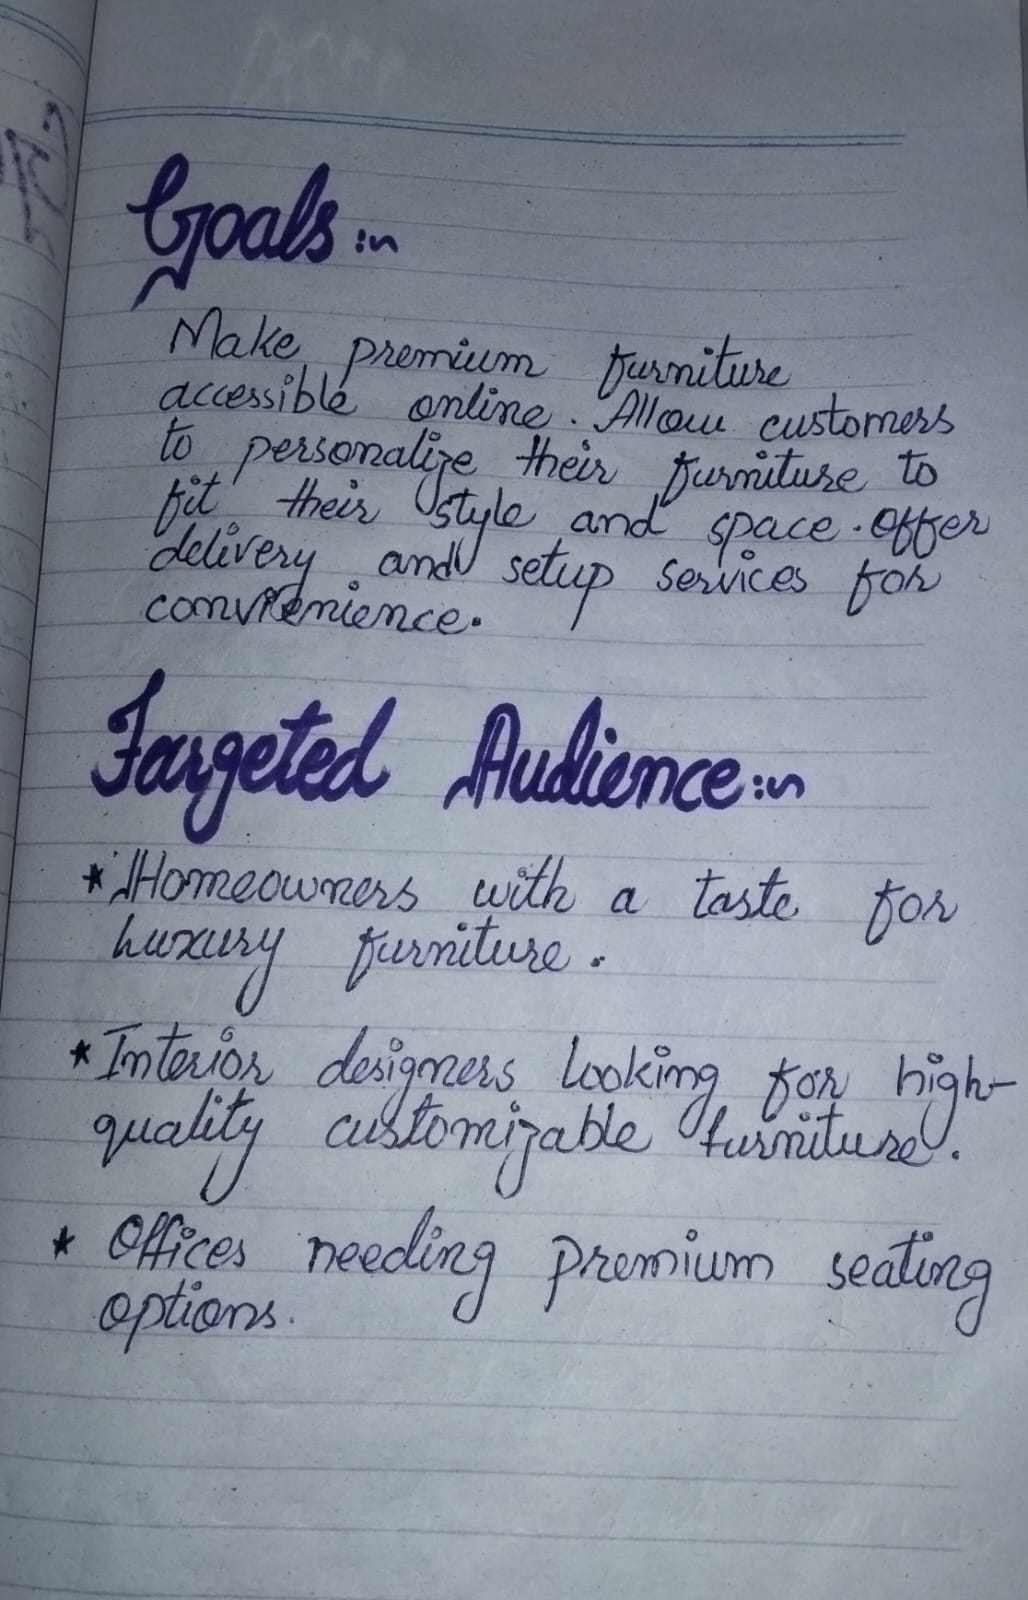 Goals :~
Make premium furniture
accessible online. Allow customers
to personalize their furniture to
fit their style and space. Offer
delivery and setup services for
convienience.
Targeted Audience :~
* Homeowners with a taste for
Luxury furniture.
* Interior designers looking for high-
quality customizable furniture.
* Offices needing premium seating
options.